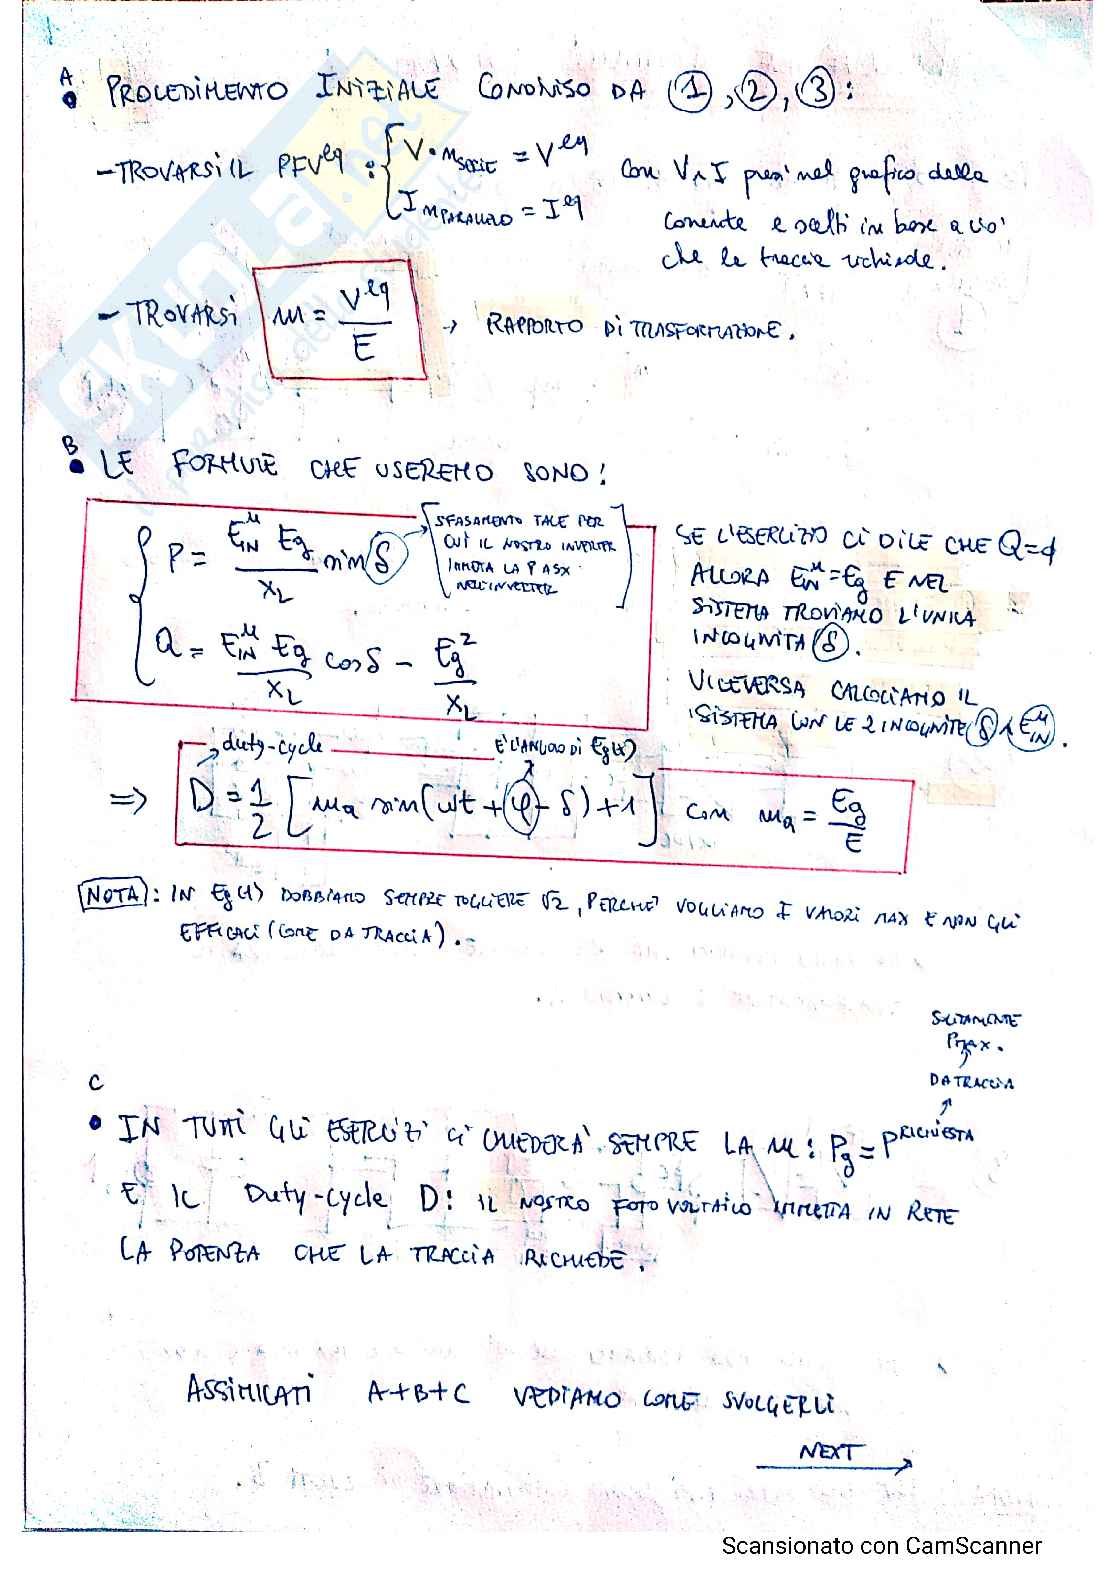 A
• PROCEDIMENTO INIZIALE CONDIVISO DA 1, 2, 3:
- TROVARSI IL PFV^eq : { V · m_SERIE = V^eq
I m_PARALLELO = I^eq
con V ∧ I presi nel grafico della
corrente e scelti in base a ciò
che la traccia richiede.
- TROVARSI m = V^eq / E → RAPPORTO DI TRASFORMAZIONE.
B
• LE FORMULE CHE USEREMO SONO!
P = E_IN^M Eg / X_L sin δ
SFASAMENTO TALE PER
CUI IL NOSTRO INVERTER
IMMETTA LA P
NELL'INVERTER
Q = E_IN^M Eg / X_L cos δ - Eg² / X_L
SE L'ESERCIZIO CI DICE CHE Q=∅
ALLORA E_IN^M = Eg E NEL
SISTEMA TROVIAMO L'UNICA
INCOGNITA δ.
VICEVERSA CALCOLIAMO IL
SISTEMA CON LE 2 INCOGNITE δ ∧ E_IN^M.
duty-cycle
E' L'ANGOLO DI Eg(t)
⇒ D = 1/2 [ma sin(ωt + φ - δ) + 1] con ma = Eg / E
NOTA: IN Eg(t) DOBBIAMO SEMPRE TOGLIERE √2, PERCHE' VOGLIAMO I VALORI MAX E NON GLI
EFFICACI (COME DA TRACCIA).
SOLITAMENTE
Pmax.
DA TRACCIA
C
• IN TUTTI GLI ESERCIZI CI CHIEDERA' SEMPRE LA m: Pg = P^RICHIESTA
E IL Duty-cycle D: IL NOSTRO FOTOVOLTAICO IMMETTA IN RETE
LA POTENZA CHE LA TRACCIA RICHIEDE.
ASSIMILATI A+B+C VEDIAMO COME SVOLGERLI
NEXT
Scansionato con CamScanner